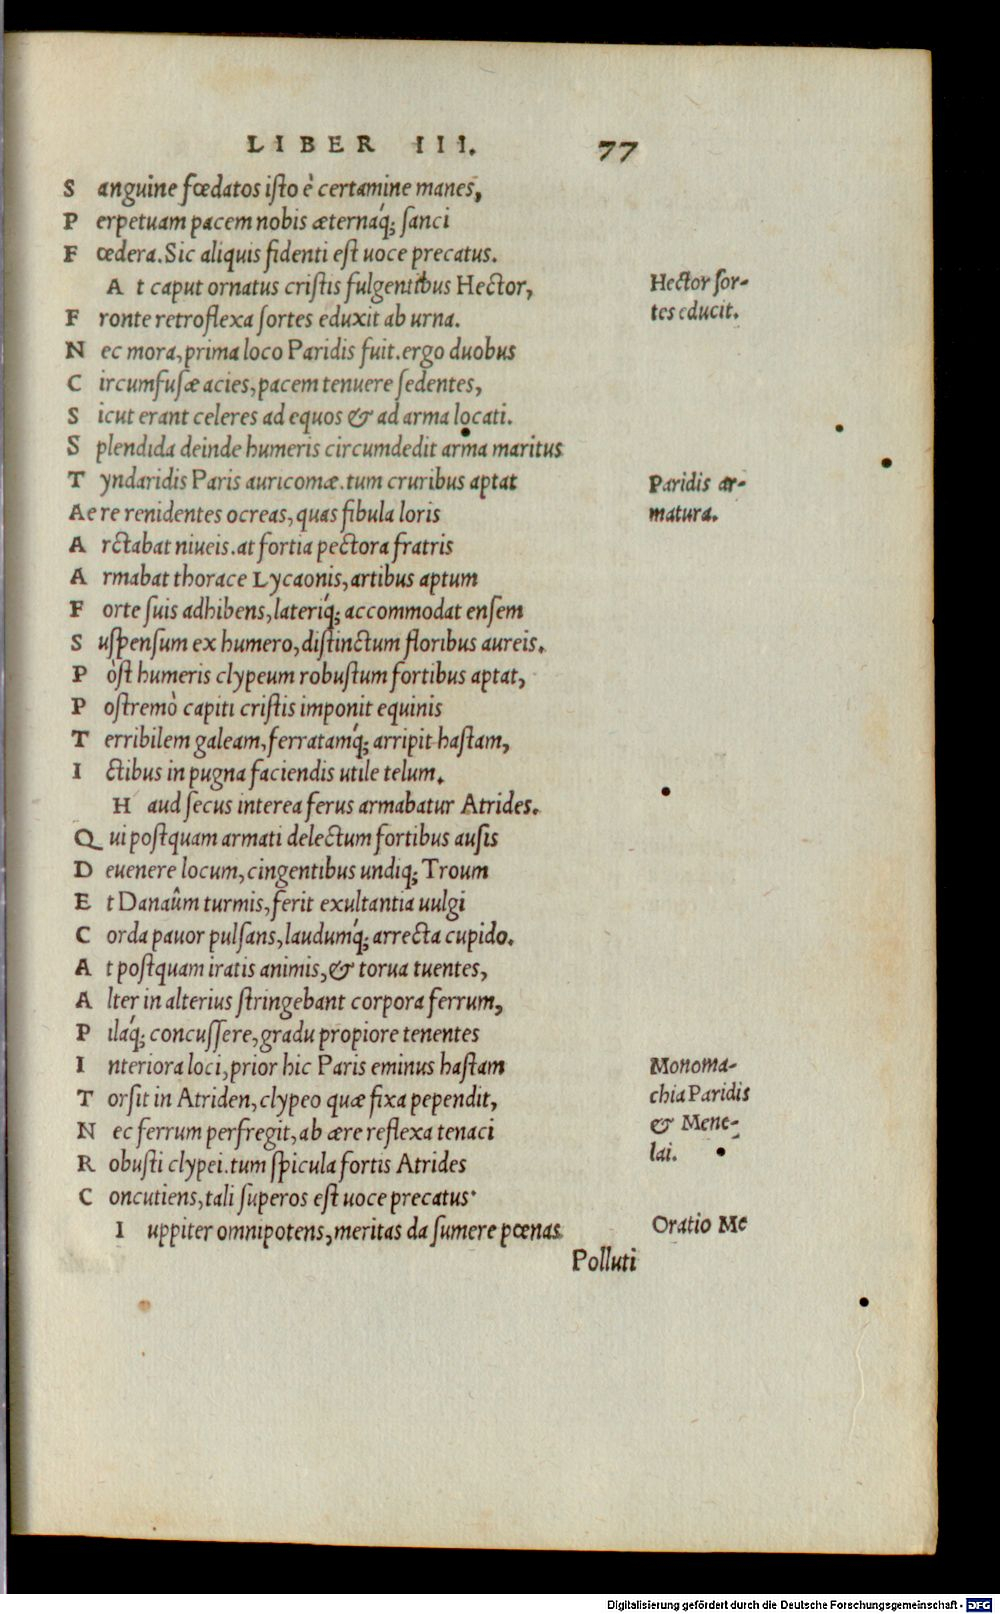 LIBER III. 77
S anguine fœdatos iſto è certamine manes,
P erpetuam pacem nobis æternáq; ſanci
F œdera. Sic aliquis fidenti eſt uoce precatus.
A t caput ornatus criſtis fulgentibus Hector,
Hector ſor-
F ronte retroflexa ſortes eduxit ab urna.
tes educit.
N ec mora, prima loco Paridis fuit. ergo duobus
C ircumfuſæ acies, pacem tenuere ſedentes,
S icut erant celeres ad equos & ad arma locati.
S plendida deinde humeris circumdedit arma maritus
T yndaridis Paris auricomæ. tum cruribus aptat
Paridis ar-
Ae re renidentes ocreas, quas fibula loris
matura.
A rctabat niueis. at fortia pectora fratris
A rmabat thorace Lycaonis, artibus aptum
F orte ſuis adhibens, lateriq́; accommodat enſem
S uſpenſum ex humero, diſtinctum floribus aureis.
P òſt humeris clypeum robuſtum fortibus aptat,
P oſtremò capiti criſtis imponit equinis
T erribilem galeam, ferratamq́; arripit haſtam,
I ctibus in pugna faciendis utile telum.
H aud ſecus interea ferus armabatur Atrides.
Q ui poſtquam armati delectum fortibus auſis
D euenere locum, cingentibus undiq; Troum
E t Danaûm turmis, ferit exultantia uulgi
C orda pauor pulſans, laudumq́; arrecta cupido.
A t poſtquam iratis animis, & torua tuentes,
A lter in alterius ſtringebant corpora ferrum,
P iláq; concuſſere, gradu propiore tenentes
I nteriora loci, prior hic Paris eminus haſtam
Monoma-
T orſit in Atriden, clypeo quæ fixa pependit,
chia Paridis
N ec ferrum perfregit, ab ære reflexa tenaci
& Mene-
R obuſti clypei. tum ſpicula fortis Atrides
lai.
C oncutiens, tali ſuperos eſt uoce precatus.
I uppiter omnipotens, meritas da ſumere pœnas
Oratio Me
Polluti
Digitalisierung gefördert durch die Deutsche Forschungsgemeinschaft - DFG